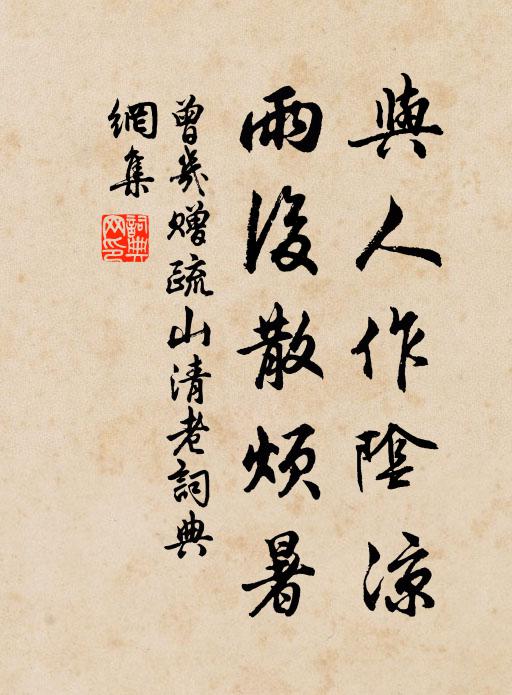 與人作陰涼
雨後散煩暑
曾幾贈疏山清老詞典
網集
詞典网印